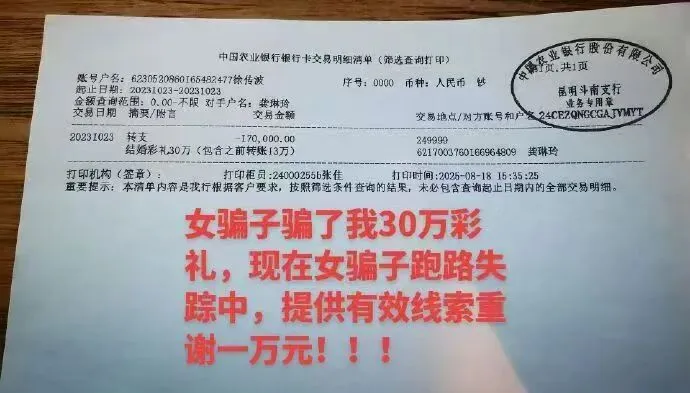 中国农业银行银行卡交易明细清单（筛选查询打印）
账户户名：6230520860165482477徐传波 序号：0000 币种：人民币 钞 第1页,共1页
起止日期：20231023-20231023
金额查询范围：0.00-不限 对手户名：龚琳玲
交易日期 摘要/附言 交易金额 交易地点/对方账号和户名
20231023 转支 -170,000.00 249999
结婚彩礼30万（包含之前转账13万） 6217003760166964809 龚琳玲
打印机构（签章）： 打印柜员：24000255b张佳 打印时间：2025-08-18 15:35:25
重要提示：本清单内容是我行根据客户要求，按照筛选条件查询的结果，未必包含查询起止日期内的全部交易明细。
中国农业银行股份有限公司
昆明斗南支行
业务专用章
24CEZQNGCGAJYMYT
女骗子骗了我30万彩
礼，现在女骗子跑路失
踪中，提供有效线索重
谢一万元！！！